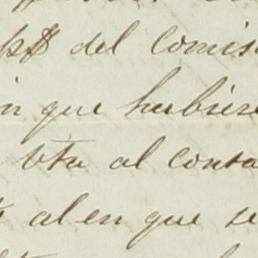 del Comis
in que hubiere
Vta al conta
alen que se